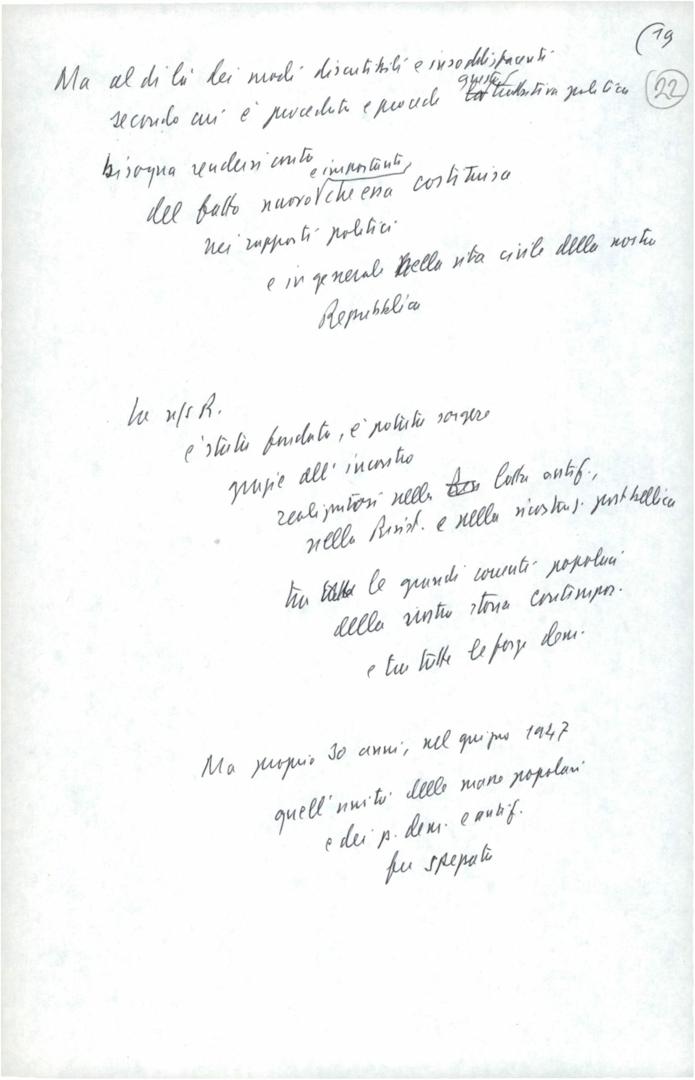 (19
22
Ma al di là dei modi discutibili e insoddisfacenti
secondo cui è proceduta e procede questa trattativa politica
bisogna rendersi conto
del fatto nuovo e importante che essa costituisce
nei rapporti politici
e in generale nella vita civile della nostra
Repubblica
La n/s R.
è stata fondata, è potuta sorgere
grazie all'incontro
realizzatosi nella lotta antif.,
nella Resist. e nella ricostruz. postbellica
tra le grandi correnti popolari
della nostra storia contempor.
e tra tutte le forze dem.
Ma proprio 30 anni, nel giugno 1947
quell'unità delle masse popolari
e dei p. dem. e antif.
fu spezzata